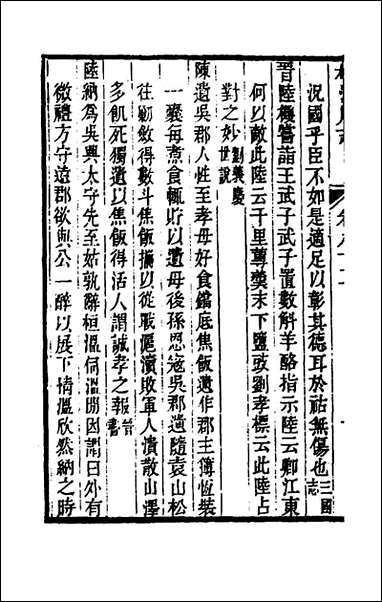 況國乎臣不如是適足以彰其德耳於祜無傷也三國志
晉陸機嘗詣王武子武子置數斛羊酪指示陸云卿江東
何以敵此陸云千里蓴羹末下鹽豉劉孝標云此陸占
對之妙劉義慶世說
陳遺吳郡人性至孝母好食鐺底焦飯遺作郡主簿恆裝
一囊每煮食輒貯以遺母後孫恩寇吳郡遺隨袁山松
往斂得數斗焦飯攜以從戰滬瀆敗軍人潰散山澤
多飢死獨遺以焦飯得活人謂誠孝之報晉書
陸納爲吳興太守先至姑孰辭桓溫伺溫閒因謂曰外有
微禮方守遠郡欲與公一醉以展下情溫欣然納之時